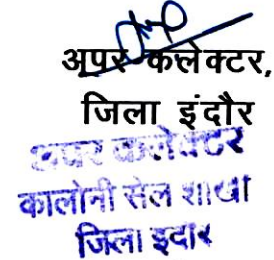 अपर कलेक्टर,
जिला इंदौर
अपर कलेक्टर
कालोनी सेल शाखा
जिला इंदौर